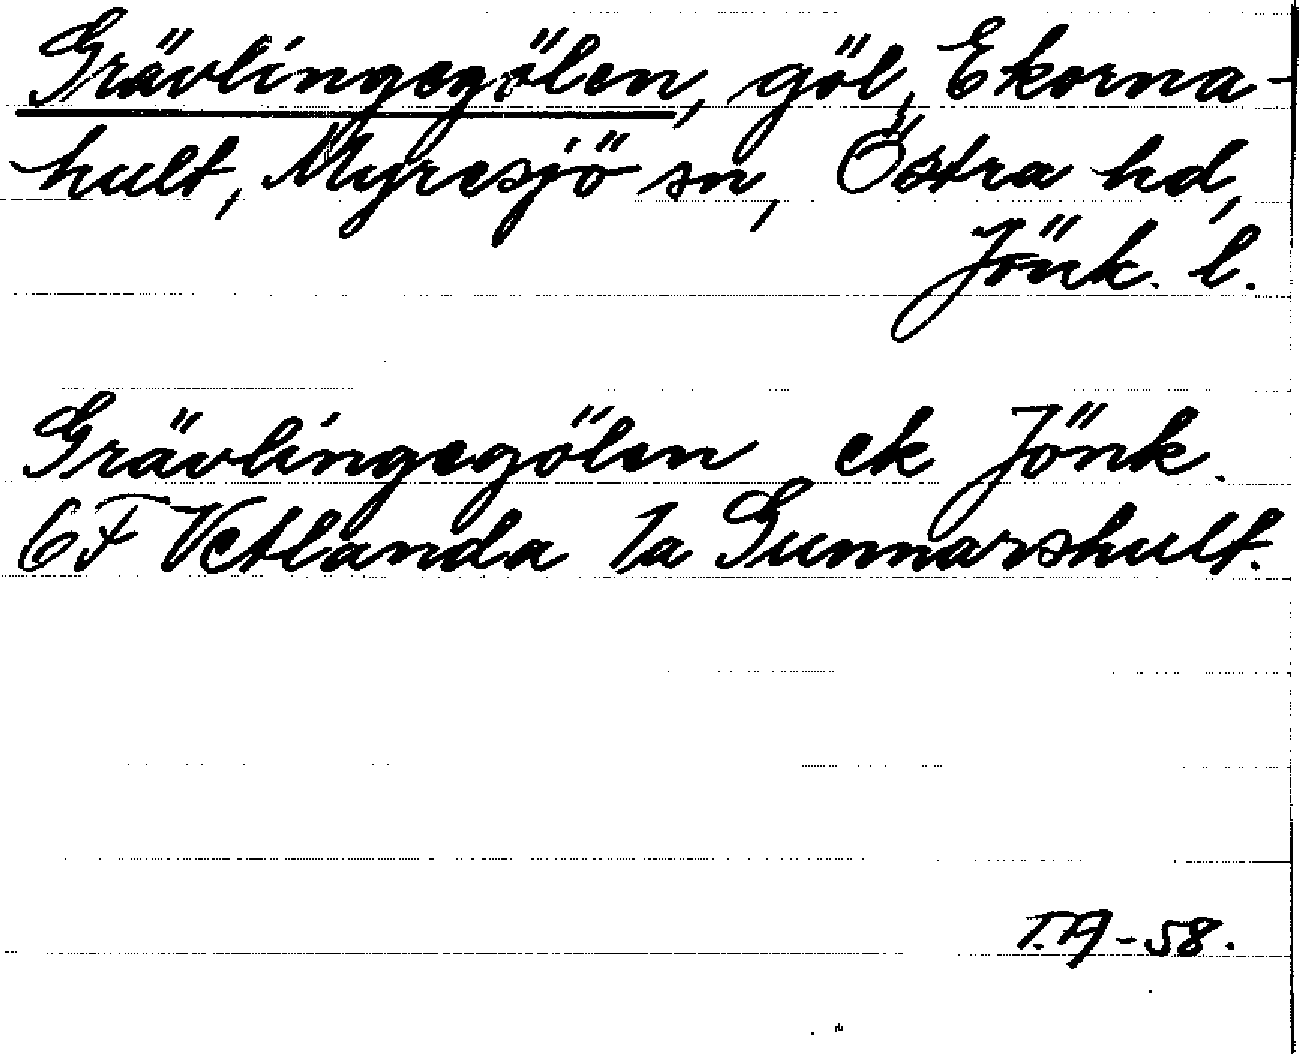 Grävlingegölen, göl, Ekorna-
hult, Myresjö sn, Östra hd,
Jönk. l.
Grävlingegölen ek Jönk.
6F Vetlanda 1a Gunnarshult.
-58.